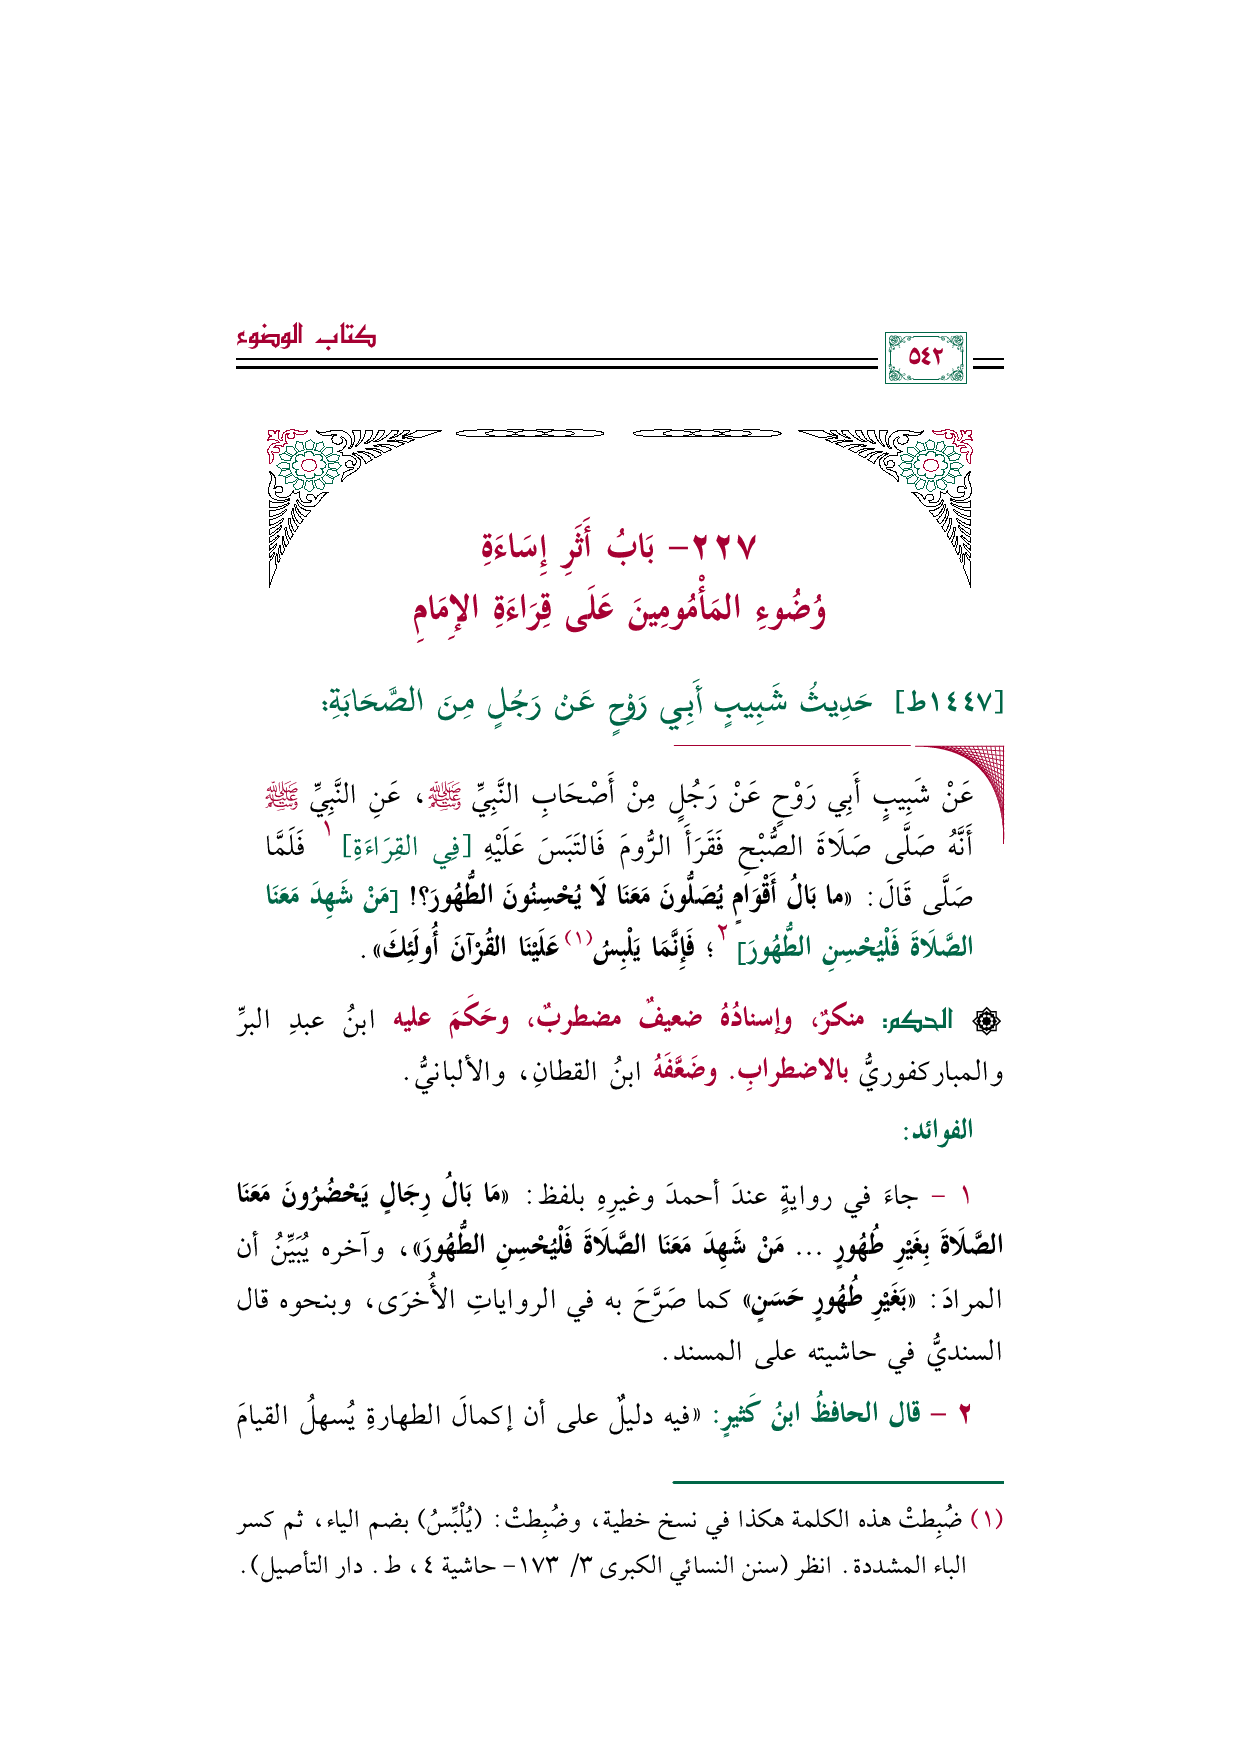 كتاب الوضوء
٥٤٢
٢٢٧- بَابُ أَثَرِ إِسَاءَةِ
وُضُوءِ المَأْمُومِينَ عَلَى قِرَاءَةِ الإِمَامِ
[١٤٤٧ط] حَدِيثُ شَبِيبٍ أَبِي رَوْحٍ عَنْ رَجُلٍ مِنَ الصَّحَابَةِ:
عَنْ شَبِيبٍ أَبِي رَوْحٍ عَنْ رَجُلٍ مِنْ أَصْحَابِ النَّبِيِّ ﷺ، عَنِ النَّبِيِّ ﷺ
أَنَّهُ صَلَّى صَلَاةَ الصُّبْحِ فَقَرَأَ الرُّومَ فَالتَبَسَ عَلَيْهِ [فِي القِرَاءَةِ] ١ فَلَمَّا
صَلَّى قَالَ: «ما بَالُ أَقْوَامٍ يُصَلُّونَ مَعَنَا لَا يُحْسِنُونَ الطُّهُورَ؟! [مَنْ شَهِدَ مَعَنَا
الصَّلَاةَ فَلْيُحْسِنِ الطُّهُورَ] ٢؛ فَإِنَّمَا يَلْبِسُ(١) عَلَيْنَا القُرْآنَ أُولَئِكَ».
الحكم: منكرٌ، وإسنادُهُ ضعيفٌ مضطربٌ، وحَكَمَ عليه ابنُ عبدِ البرِّ
والمباركفوريُّ بالاضطرابِ. وضَعَّفَهُ ابنُ القطانِ، والألبانيُّ.
الفوائد:
١ - جاءَ في روايةٍ عندَ أحمدَ وغيرِهِ بلفظ: «مَا بَالُ رِجَالٍ يَحْضُرُونَ مَعَنَا
الصَّلَاةَ بِغَيْرِ طُهُورٍ ... مَنْ شَهِدَ مَعَنَا الصَّلَاةَ فَلْيُحْسِنِ الطُّهُورَ»، وآخره يُبَيِّنُ أن
المرادَ: «بَغَيْرِ طُهُورٍ حَسَنٍ» كما صَرَّحَ به في الرواياتِ الأُخرَى، وبنحوه قال
السنديُّ في حاشيته على المسند.
٢ - قال الحافظُ ابنُ كَثيرٍ: «فيه دليلٌ على أن إكمالَ الطهارةِ يُسهلُ القيامَ
(١) ضُبِطتْ هذه الكلمة هكذا في نسخ خطية، وضُبِطتْ: (يُلْبِّسُ) بضم الياء، ثم كسر
الباء المشددة. انظر (سنن النسائي الكبرى ٣/ ١٧٣- حاشية ٤، ط. دار التأصيل).